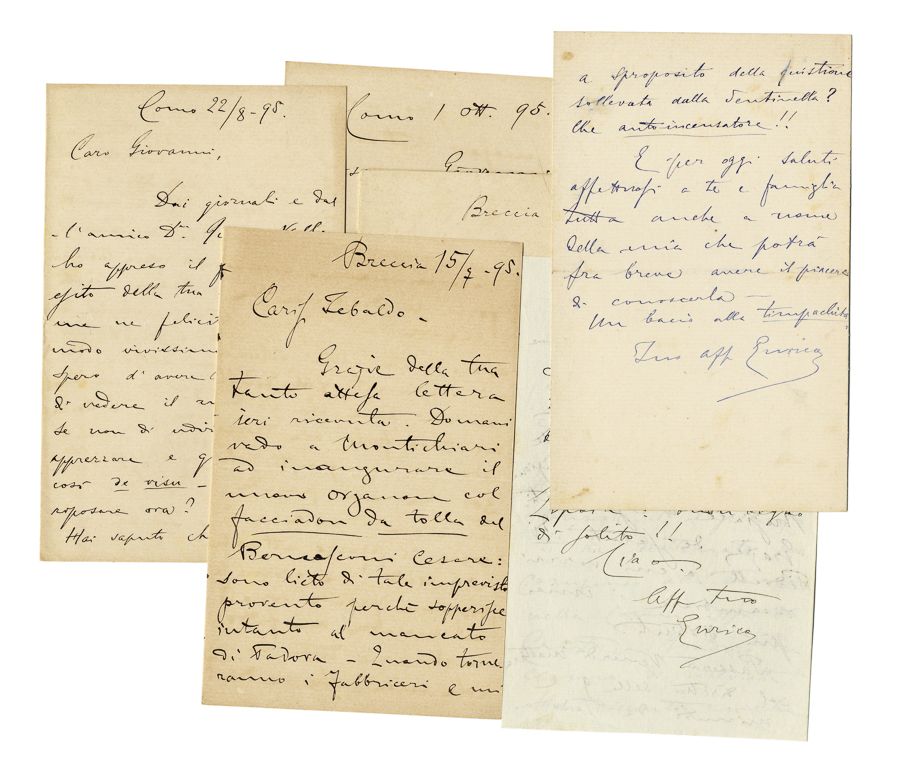 Como 22/8-95.
Caro Giovanni,
Dai giornali e dal
l'amico Dr.
ho appreso il
esito della tua
me ne felicit
modo vivissim
spero d'avere
di vedere il
se non di udir
apprezzare e q
così de visu -
riposare ora?
Hai saputo ch
Como 1 Ott. 95.
Giovanni
Breccia
Breccia 15/7-95.
Cariss Tebaldo -
Grazie della tua
tanto attesa lettera
ieri ricevuta. Domani
vado a Montichiari
ad inaugurare il
nuovo organone col
facciadon da tolla del
Bernasconi Cesare:
sono lieto di tale imprevisto
provento perchè sopperisce
intanto al mancato
di Padova - Quando torne-
ranno i Fabbriceri e mi
a sproposito della quistione
sollevata dalla Sentinella?
Che autoincensatore!!
E per oggi saluti
affettuosi a te e famiglia
tutta anche a nome
della mia che potrà
fra breve avere il piacere
di conoscerla -
Un bacio alla
Tuo aff Enrico
di solito!!
Ciao.
Aff tuo
Enrico